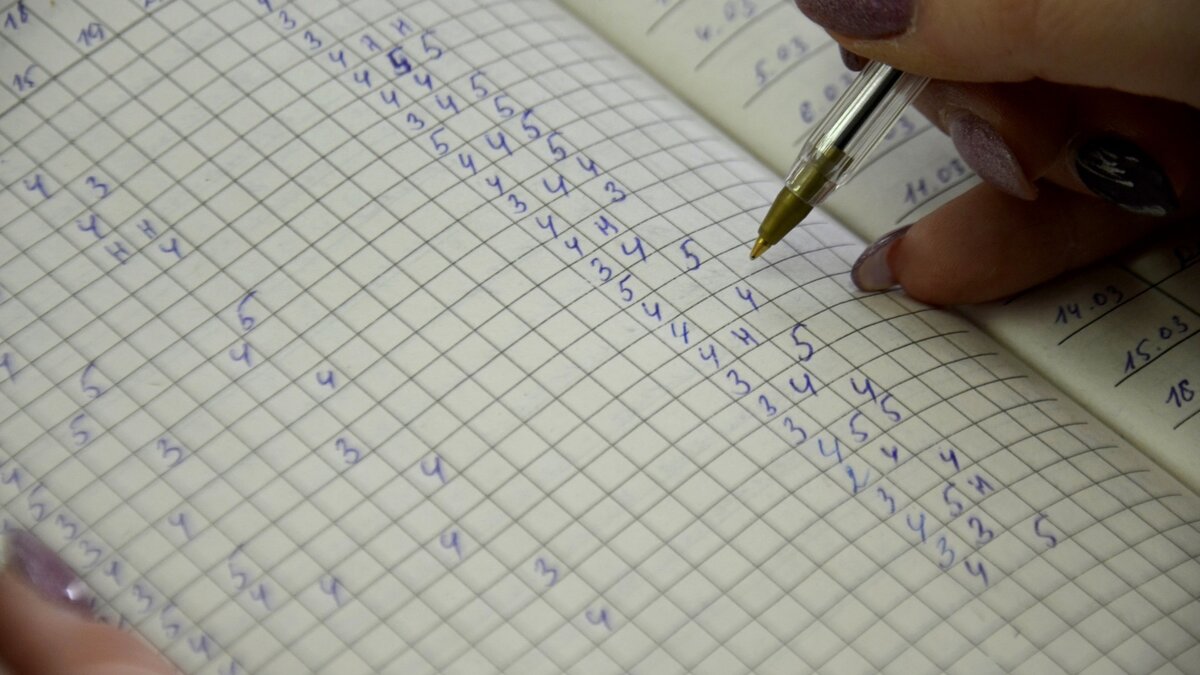 18
19
15
4
3
3
4 н н
4 5 5
4 4
3 4 5
5 5
4 4 5
4 5
3 4 4
4 3
4 н
3 4
5 5
4
4 4
4 н
3 5
3 4
3 4
4 5 5
2 4
3 4
4 5 н
3 3
4 5
4 3
4 н
н 4
5
4 4
5
5
3 3 4
4 4 3
5
4 4 4
5
3
3
4.03
5.03
03
11.03
14.03
15.03
16